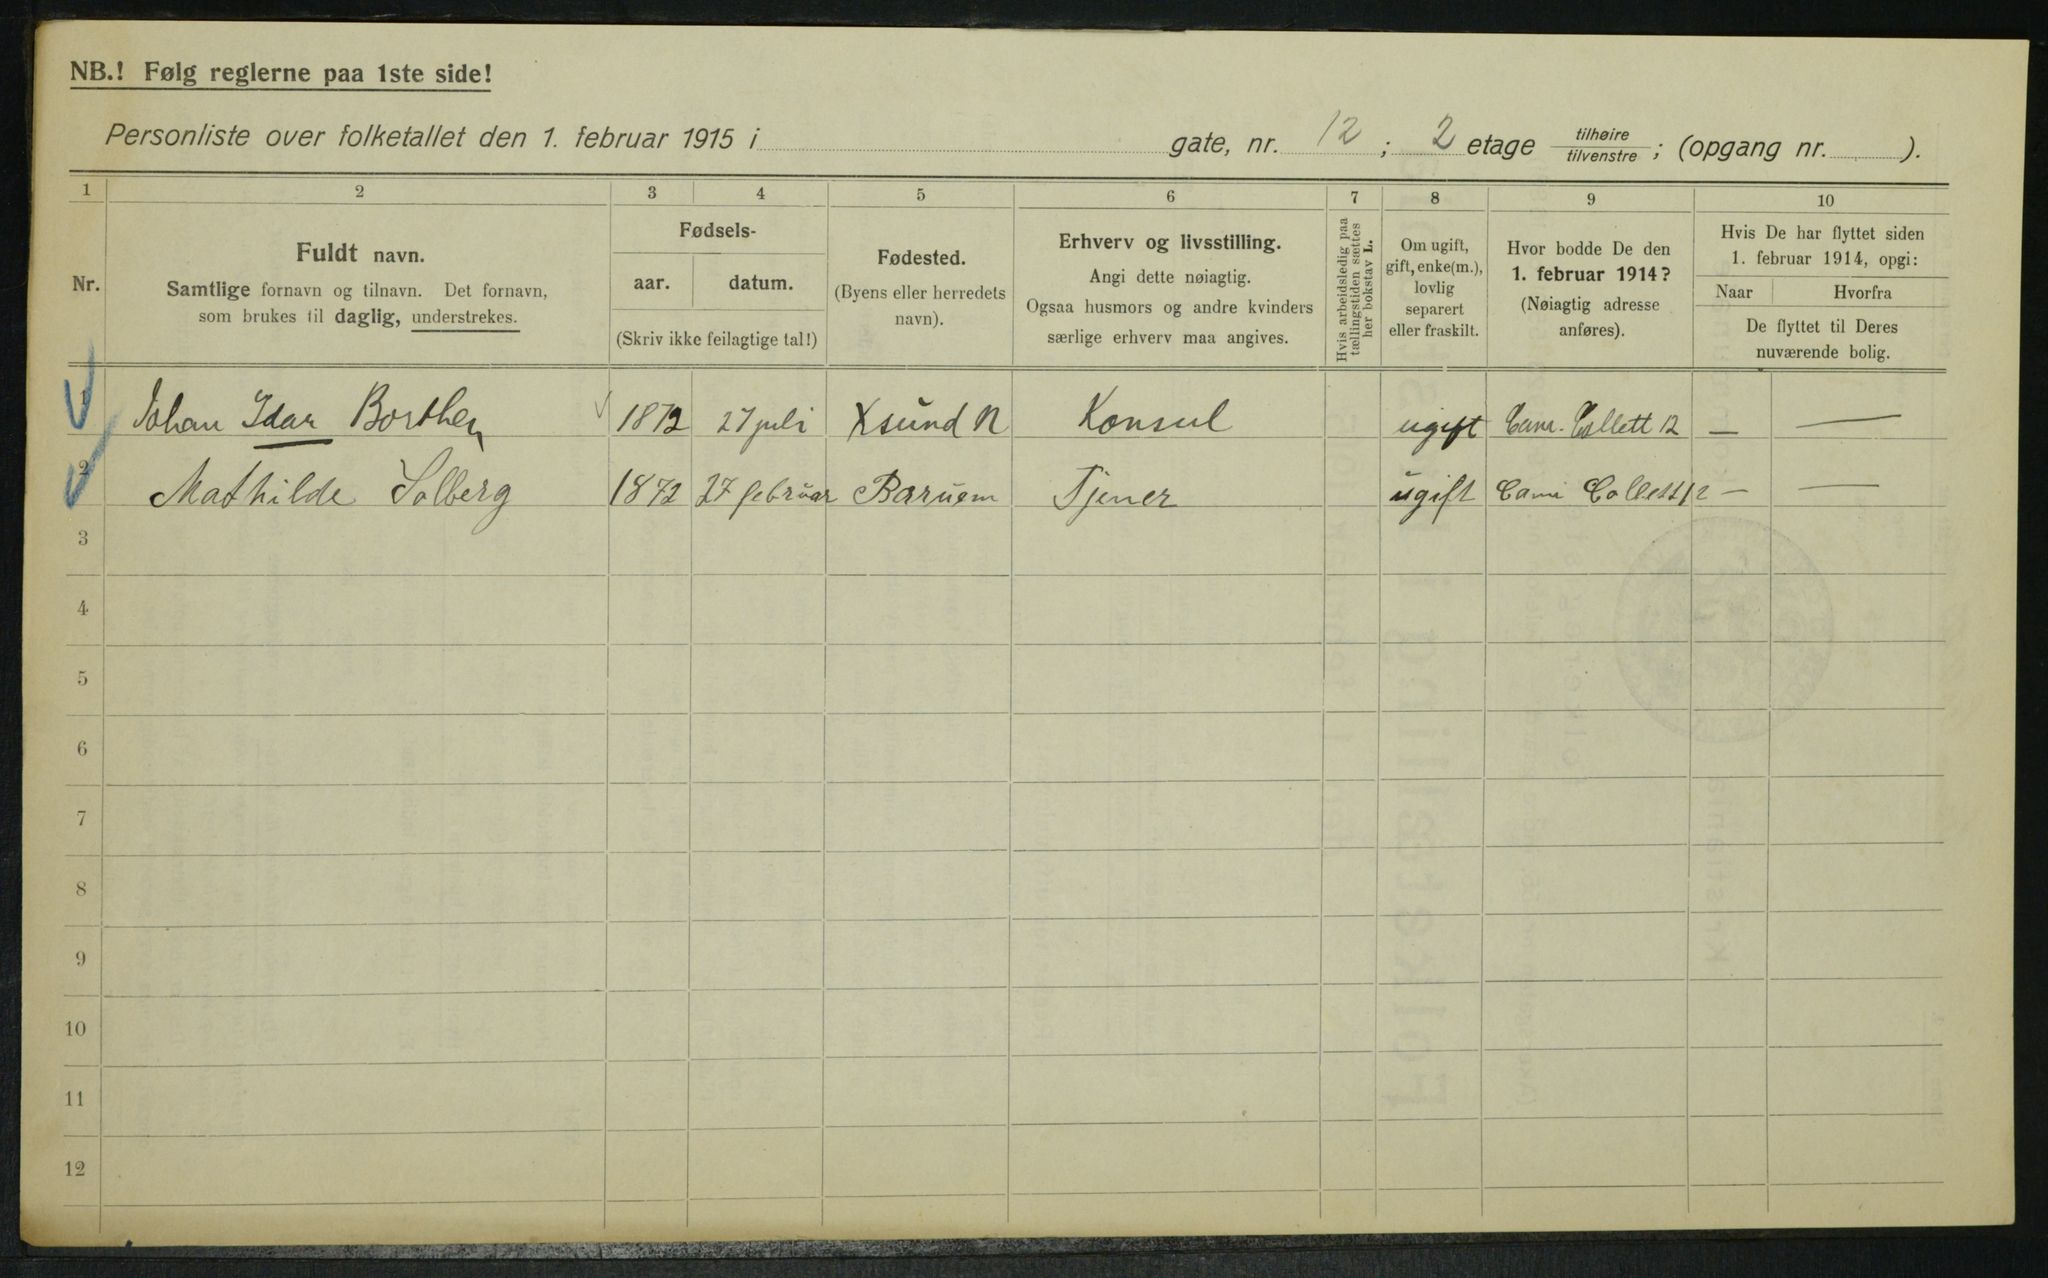 NB.! Følg reglerne paa 1ste side!
Personliste over folketallet den 1. februar 1915 i gate, nr. 12 ; 2 etage tilhøire/tilvenstre ; (opgang nr. ).
1 2 3 4 5 6 7 8 9 10
Nr.
Fuldt navn.
Samtlige fornavn og tilnavn. Det fornavn,
som brukes til daglig, understrekes.
Fødsels-
aar. datum.
(Skriv ikke feilagtige tal!)
Fødested.
(Byens eller herredets
navn).
Erhverv og livsstilling.
Angi dette nøiagtig.
Ogsaa husmors og andre kvinders
særlige erhverv maa angives.
Hvis arbeidsledig paa
tællingstiden sættes
her bokstav L.
Om ugift,
gift, enke(m.),
lovlig
separert
eller fraskilt.
Hvor bodde De den
1. februar 1914?
(Nøiagtig adresse
anføres).
Hvis De har flyttet siden
1. februar 1914, opgi:
Naar Hvorfra
De flyttet til Deres
nuværende bolig.
1 Johan Idar Borthen 1872 27 juli Xsund N Konsul ugift Cam. Collett 12 — —
2 Mathilde Solberg 1872 27 februar Baruem Tjener ugift Cami Collett 12 — —
3
4
5
6
7
8
9
10
11
12